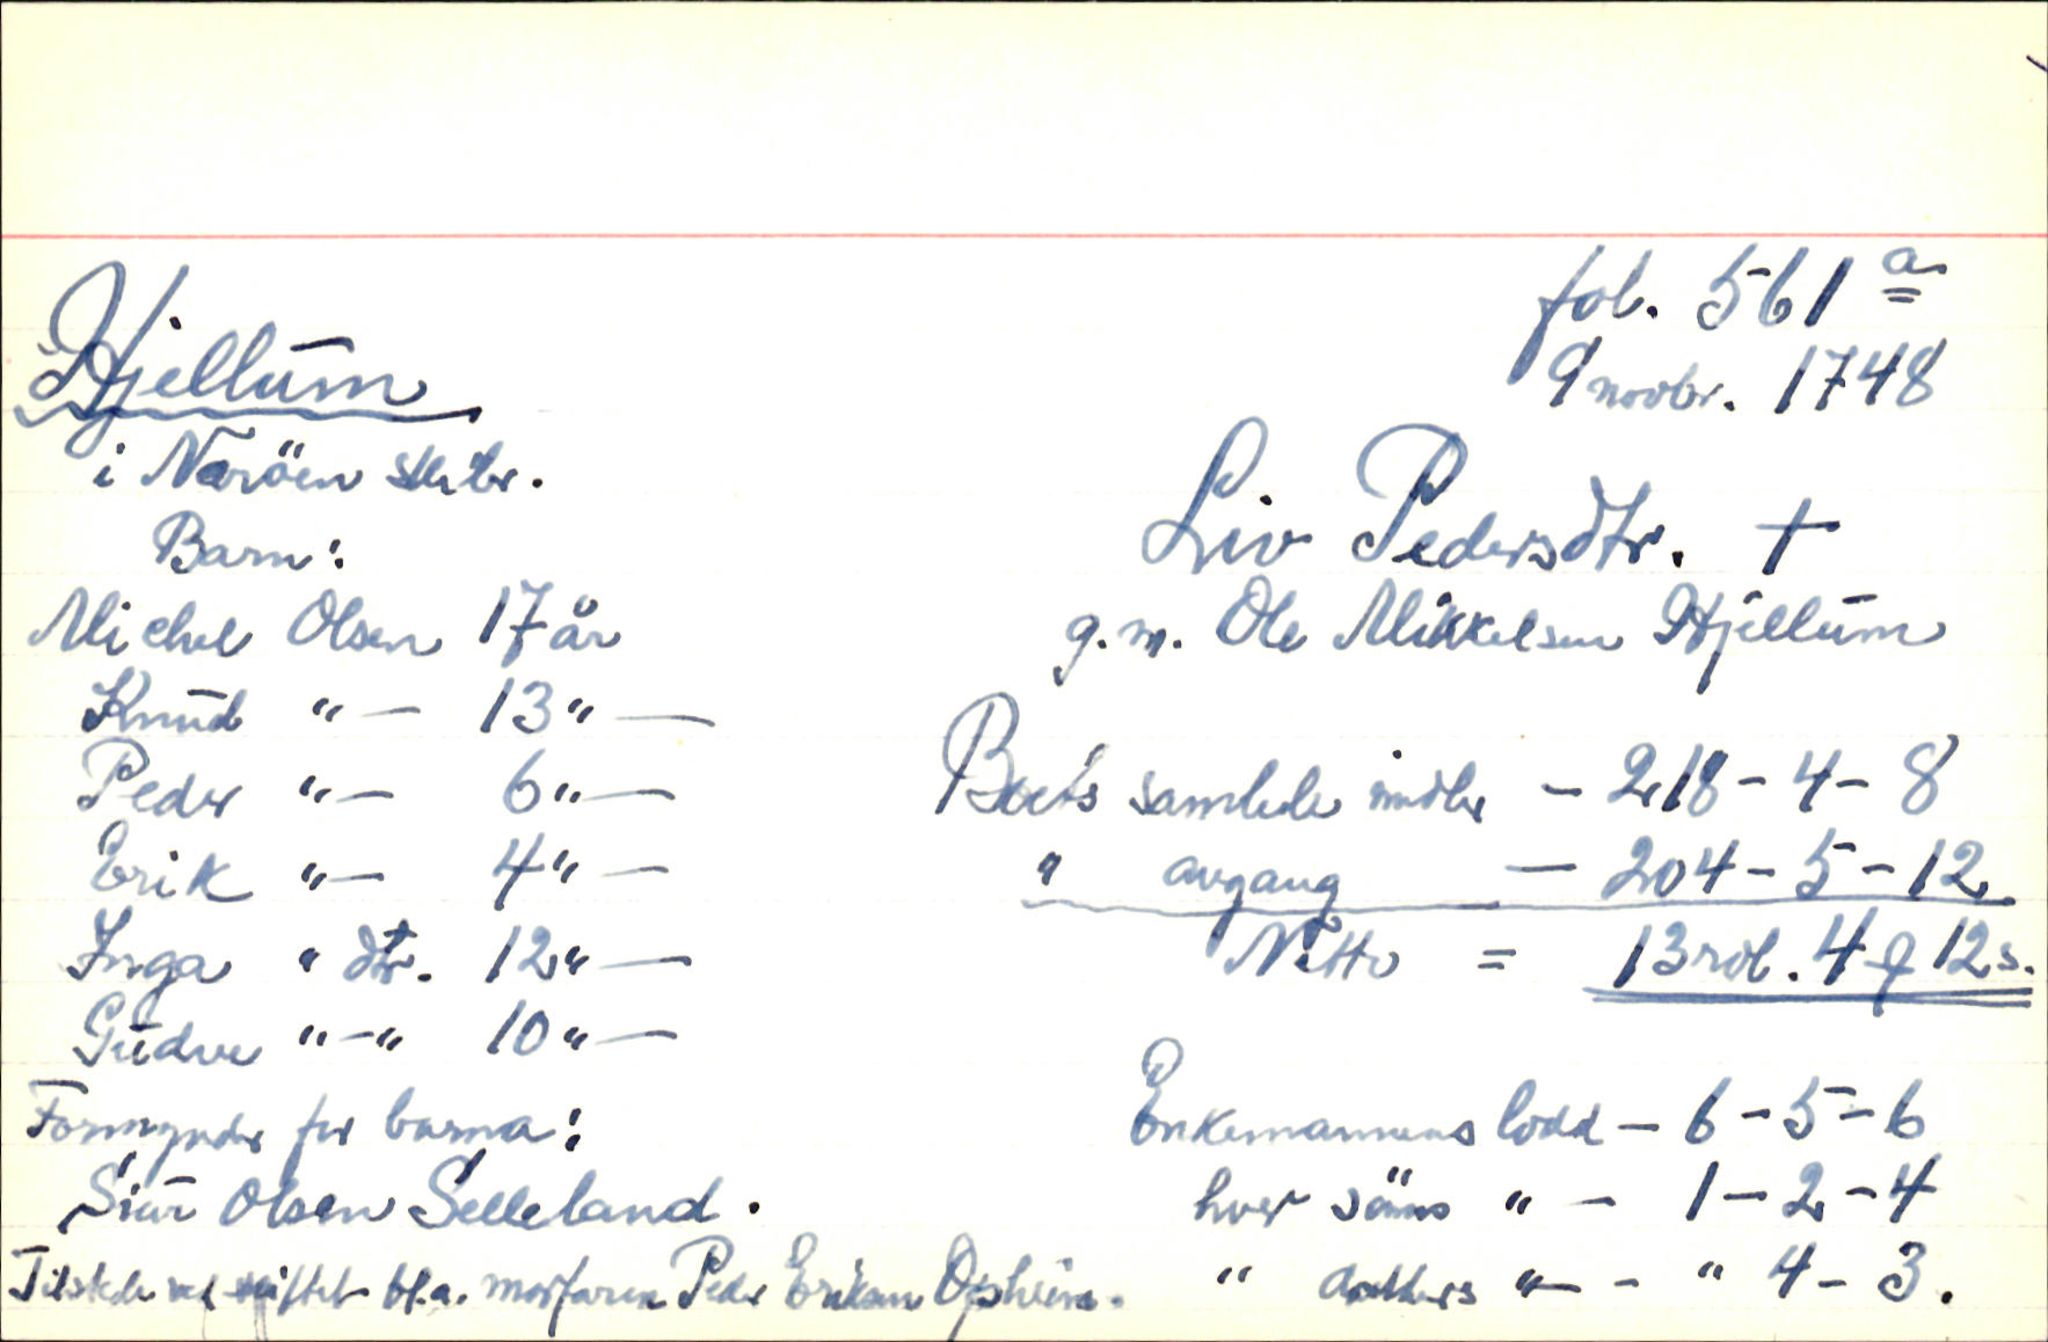 fol. 561 a
9 novbr. 1748
Hjellum
i Neröen skibr.
Liv Pedersdtr. †
g.m. Ole Mikkelsen Hjellum
Barn:
Michel Olsen 17 år
Knud "— 13 "—
Peder "— 6 "—
Erik "— 4 "—
Inga " dtr. 12 "—
Gudve "—" 10 "—
Formynder for barna:
Siur Olsen Selleland.
Boets samlede midler — 218 - 4 - 8
" avgang — 204 - 5 - 12
Netto = 13 rdl. 4 ꝗ 12 s.
Enkemannens lodd — 6 - 5 - 6
hver söns " — 1 - 2 - 4
" dotters "— - " 4 - 3.
Tilstede ved skiftet bl.a. morfaren Peder Eriksen Opheim.